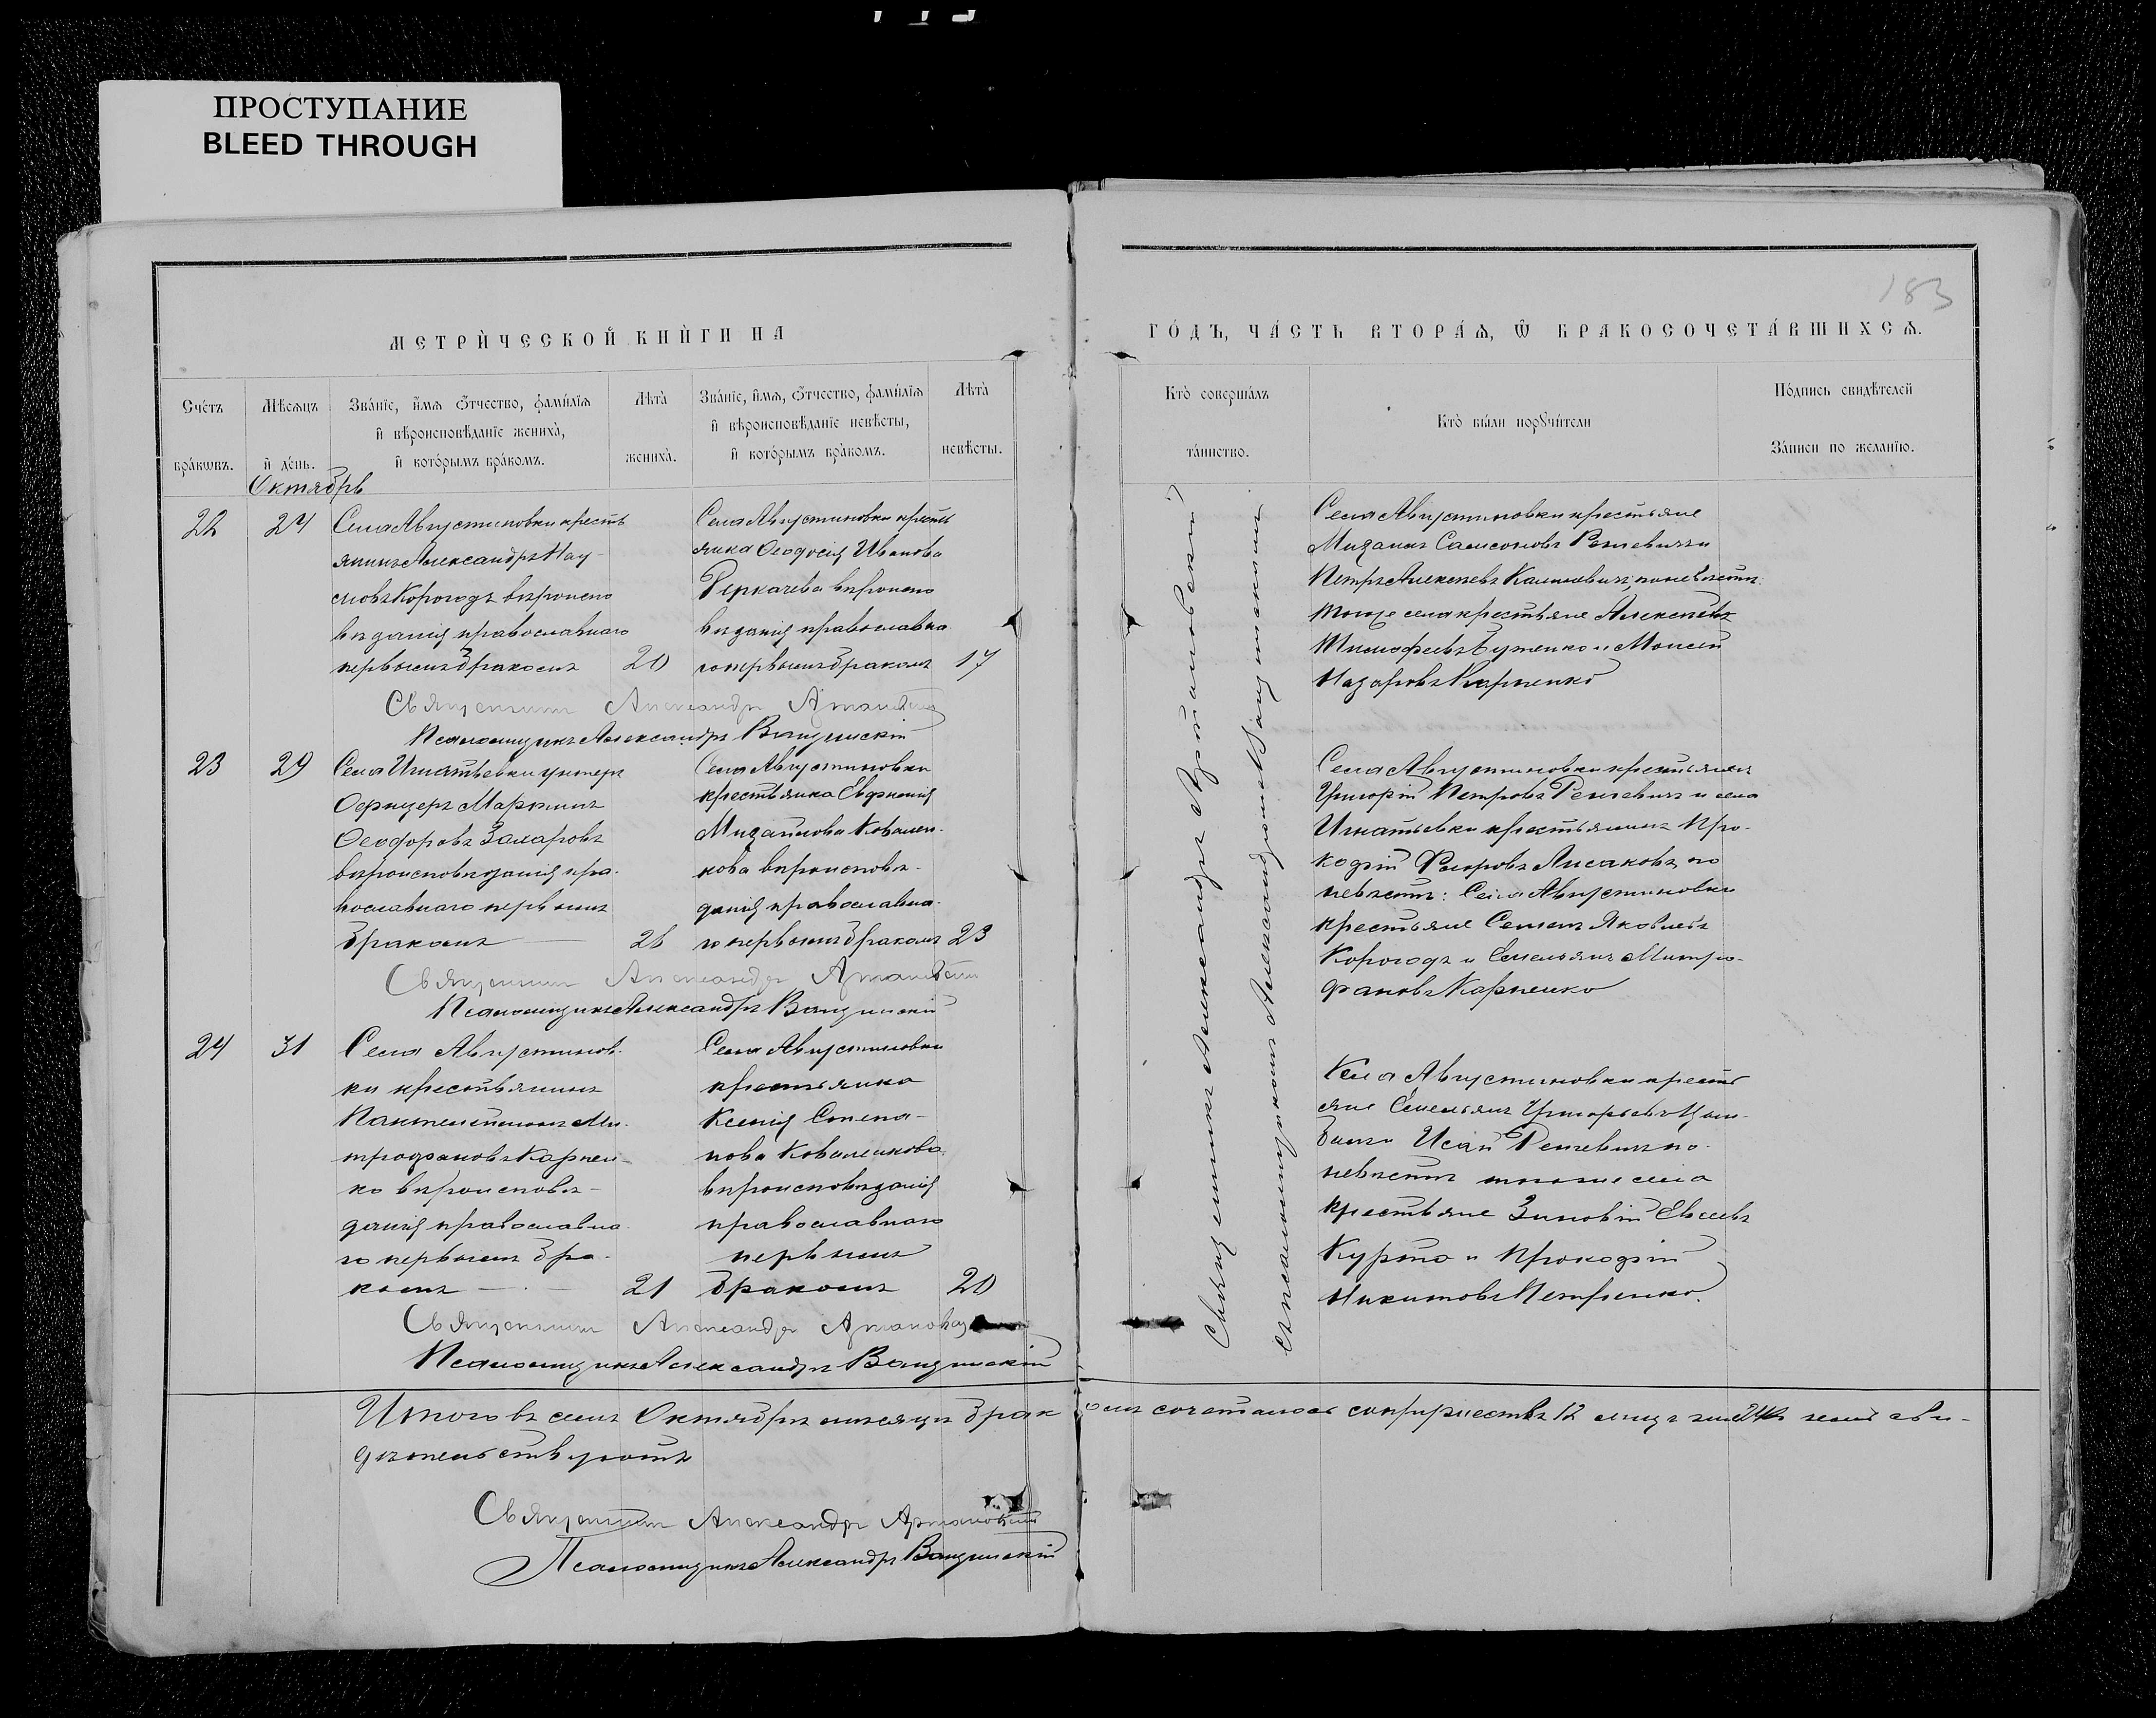 ПРОСТУПАНИЕ
BLEED THROUGH
183
МЕТРИ́ЧЕСКОЙ КНИ́ГИ НА
ГО́ДЪ, ЧА́СТЬ ВТОРА́Ѧ, Ѡ҆ БРАКОСОЧЕТА́ВШИХСѦ.
Счетъ браковъ.
Мѣсяцъ и день.
Званіе, имя, отчество, фамилія и вѣроисповѣданіе жениха, и которымъ бракомъ.
Лѣта жениха.
Званіе, имя, отчество, фамилія и вѣроисповѣданіе невѣсты, и которымъ бракомъ.
Лѣта невѣсты.
Кто совершалъ таинство.
Кто были поручители
Подпись свидѣтелей записи по желанію.
Октябрь
22
24
Села Августиновки кресть
янинъ Александръ Нау-
мовъ Корогодъ вѣроиспо
вѣданія православнаго
первымъ бракомъ
20
Села Августиновки кресть
янка Ѳеодосія Иванова
Деркачева вѣроиспо
вѣданія православна
го первымъ бракомъ
17
Села Августиновки крестьяне
Михаилъ Самсоновъ
Петръ Алексѣевъ по невѣстѣ
того же села крестьяне Алексѣй
Тимофеевъ Бутенко и Моисей
Назаровъ Карпенко
Священникъ Александръ
Псаломщикъ Александръ
23
29
Села Игнатьевки унтеръ
Офицеръ Мартинъ
Ѳеодоровъ Захаровъ
вѣроисповѣданія пра-
вославнаго первымъ
бракомъ
26
Села Августиновки
крестьянка Евфимія
Михайлова Ковален-
кова вѣроисповѣ-
данія православна-
го первымъ бракомъ
23
Села Августиновки крестьянинъ
Григорій Петровъ и села
Игнатьевки крестьянинъ Про-
кофій по
невѣстѣ: Села Августиновки
крестьяне Семенъ Яковлевъ
Корогодъ и Емельянъ Митро-
фановъ Карпенко
Священникъ Александръ
Псаломщикъ Александръ
24
31
Села Августинов-
ки крестьянинъ
Пантелеймонъ Ми-
трофановъ Карпен-
ко вѣроисповѣ-
данія православна
го первымъ бра-
комъ
21
Села Августиновки
крестьянка
Ксенія Степа-
нова Коваленкова
вѣроисповѣданія
православнаго
первымъ
бракомъ
20
Села Августиновки кресть
яне Емельянъ Григорьевъ
Исай по
невѣстѣ того же села
крестьяне Зиновій Евсеевъ
Курта и Прокофій
Никитовъ Петренко.
Священникъ Александръ
Псаломщикъ Александръ
Священникъ Александръ
съ псаломщикомъ Александромъ
Итого въ семъ Октябрѣ мѣсяцѣ брак
омъ сочеталось супружествъ 12 лицъ 24 въ чемъ сви-
дѣтельствуютъ
Священникъ Александръ
Псаломщикъ Александръ